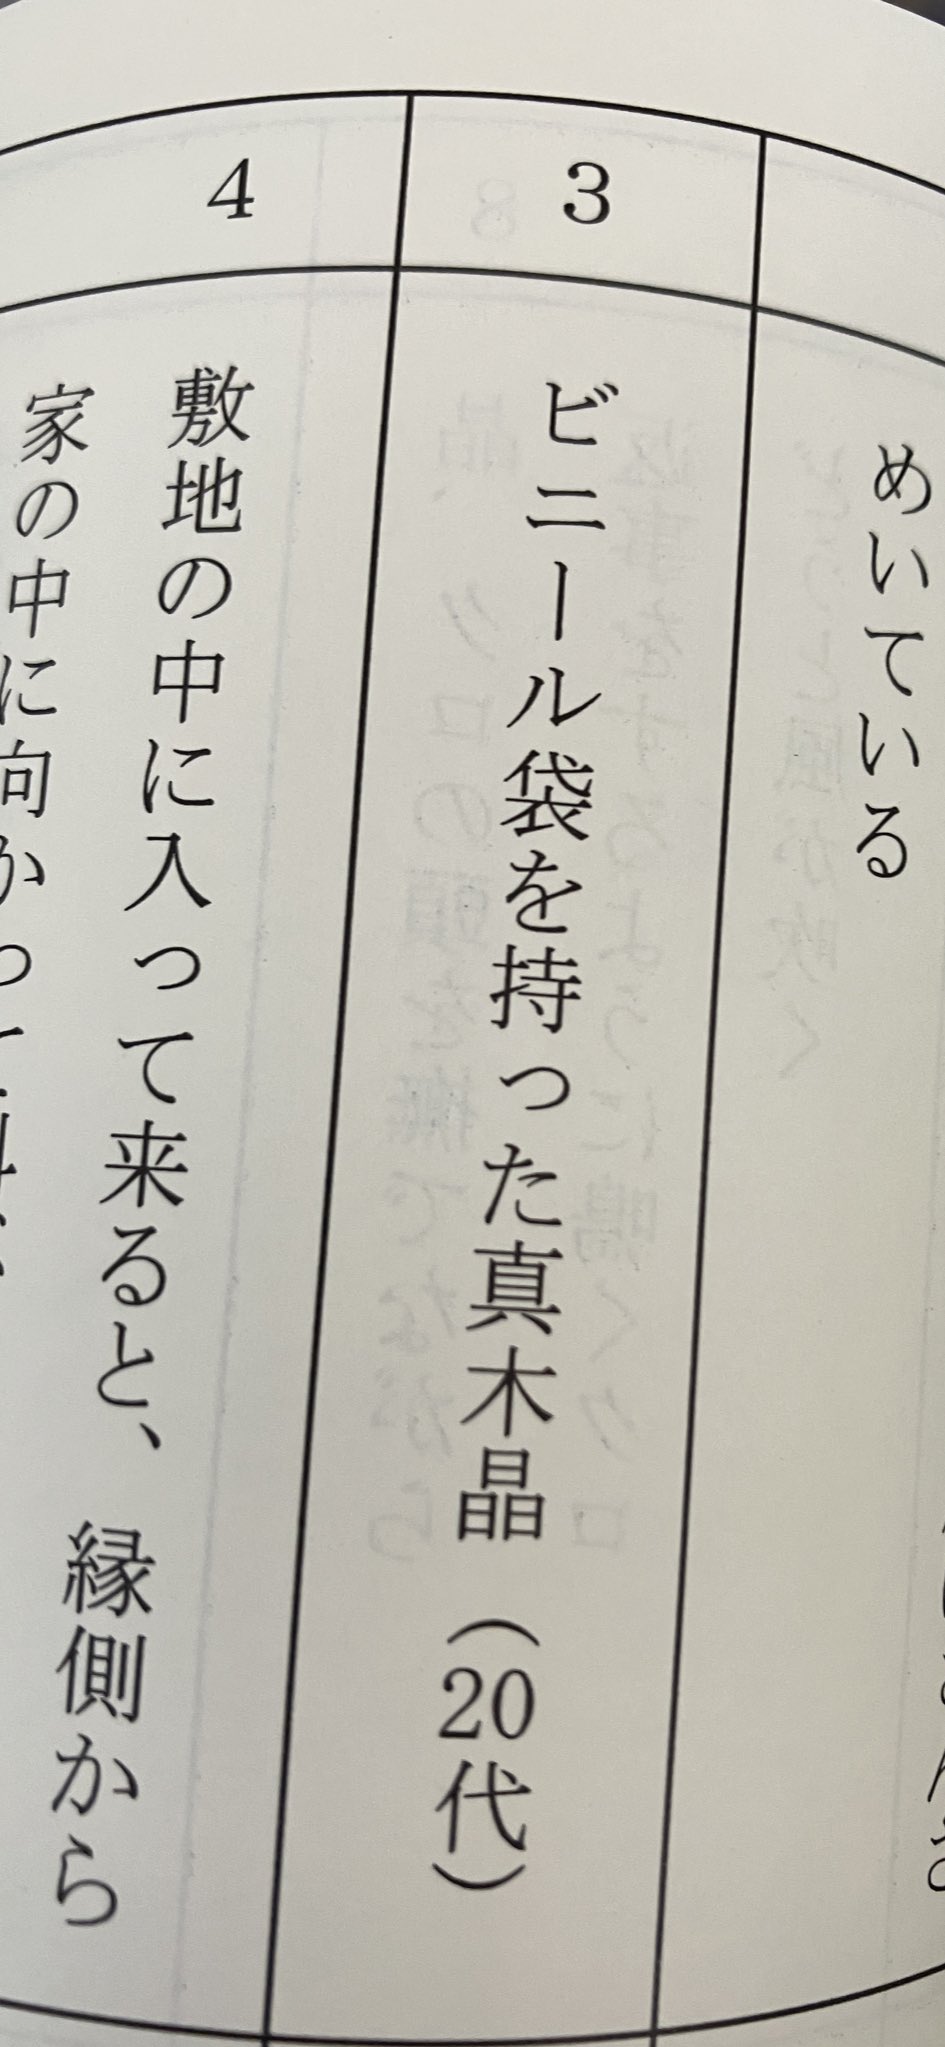 めいている
3
ビニール袋を持った真木晶（20代）
4
敷地の中に入って来ると、縁側から
家の中に向かって